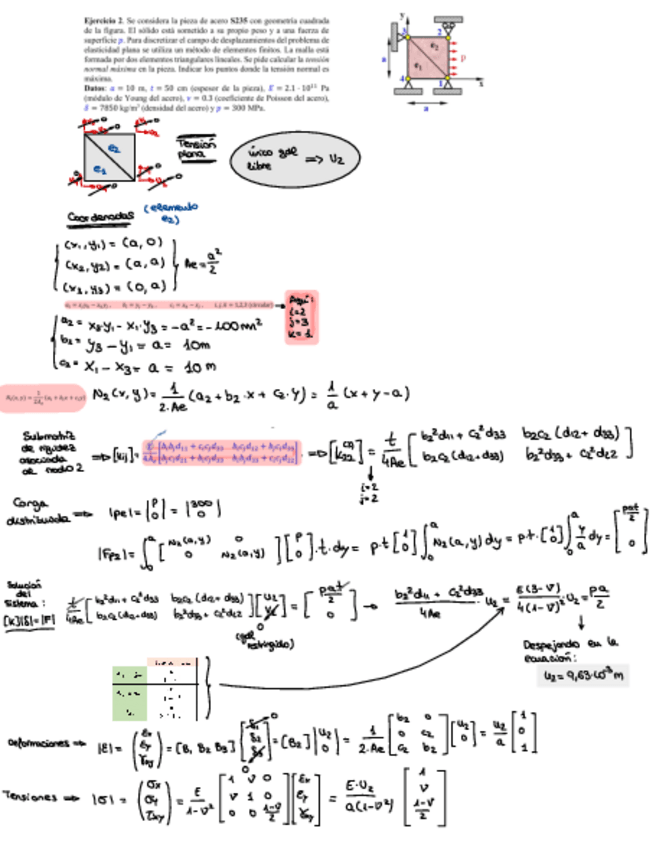 Ejercicio 2. Se considera la pieza de acero S235 con geometría cuadrada
de la figura. El sólido está sometido a su propio peso y a una fuerza de
superficie p. Para discretizar el campo de desplazamientos del problema de
elasticidad plana se utiliza un método de elementos finitos. La malla está
formada por dos elementos triangulares lineales. Se pide calcular la tensión
normal máxima en la pieza. Indicar los puntos donde la tensión normal es
máxima.
Datos: a = 10 m, t = 50 cm (espesor de la pieza), E = 2.1 · 10¹¹ Pa
(módulo de Young del acero), ν = 0.3 (coeficiente de Poisson del acero),
δ = 7850 kg/m³ (densidad del acero) y p = 300 MPa.
y
e₂
e₁
p
a
4
1
x
a
e₂
e₁
Tensión
plana
único gdl
libre => U₂
Coordenadas (elemento
e₂)
(x₁,y₁) = (a, 0)
(x₂,y₂) = (a, a)
(x₃,y₃) = (0, a)
Ae = a²/2
Aquí:
i=2
j=3
k=1
a₂ = x₃y₁ - x₁·y₃ = -a² = -100 m²
b₂ = y₃ - y₁ = a = 10m
c₂ = x₁ - x₃ = a = 10 m
N₂(x,y) = 1/(2·Ae) (a₂ + b₂·x + c₂·y) = 1/a (x+y-a)
Submatriz
de rigidez
asociada
al nodo 2
=> [kij] =
=> [k₂₂] = t/4Ae [b₂²d₁₁ + c₂²d₃₃ b₂c₂(d₁₂+d₃₃)
b₂c₂(d₁₂+d₃₃) b₂²d₃₃ + c₂²d₂₂]
i=2
j=2
Carga
distribuida => |pe| = |p 0| = |300 0|
|Fp₂| = ∫₀ᵃ [N₂(a,y) 0
0 N₂(a,y)] [p 0]·t·dy = p·t [1 0] ∫₀ᵃ N₂(a,y) dy = p·t·[1 0] ∫₀ᵃ y/a dy = [pat/2 0]
Solución
del
sistema:
[K]|δ|=|F|
t/4Ae [b₂²d₁₁ + c₂²d₃₃ b₂c₂(d₁₂+d₃₃)
b₂c₂(d₁₂+d₃₃) b₂²d₃₃ + c₂²d₂₂] [U₂ V₂] = [pat/2 0] → (b₂²d₁₁ + c₂²d₃₃)/4Ae · U₂ = E(3-ν)/4(1-ν²) · U₂ = pa/2
0
(gdl
restringido)
Despejando en la
ecuación:
U₂ = 9,63·10⁻³ m
Deformaciones => |ε| = (εx εy γxy) = [B₁ B₂ B₃] [δ₁ δ₂ δ₃] = [B₂] |U₂ 0| = 1/(2·Ae) [b₂ 0
0 c₂
c₂ b₂] [U₂ 0] = U₂/a [1 0 1]
Tensiones => |σ| = (σx σy τxy) = E/(1-ν²) [1 ν 0
ν 1 0
0 0 (1-ν)/2] [εx εy γxy] = E·U₂/a(1-ν²) [1 ν (1-ν)/2]